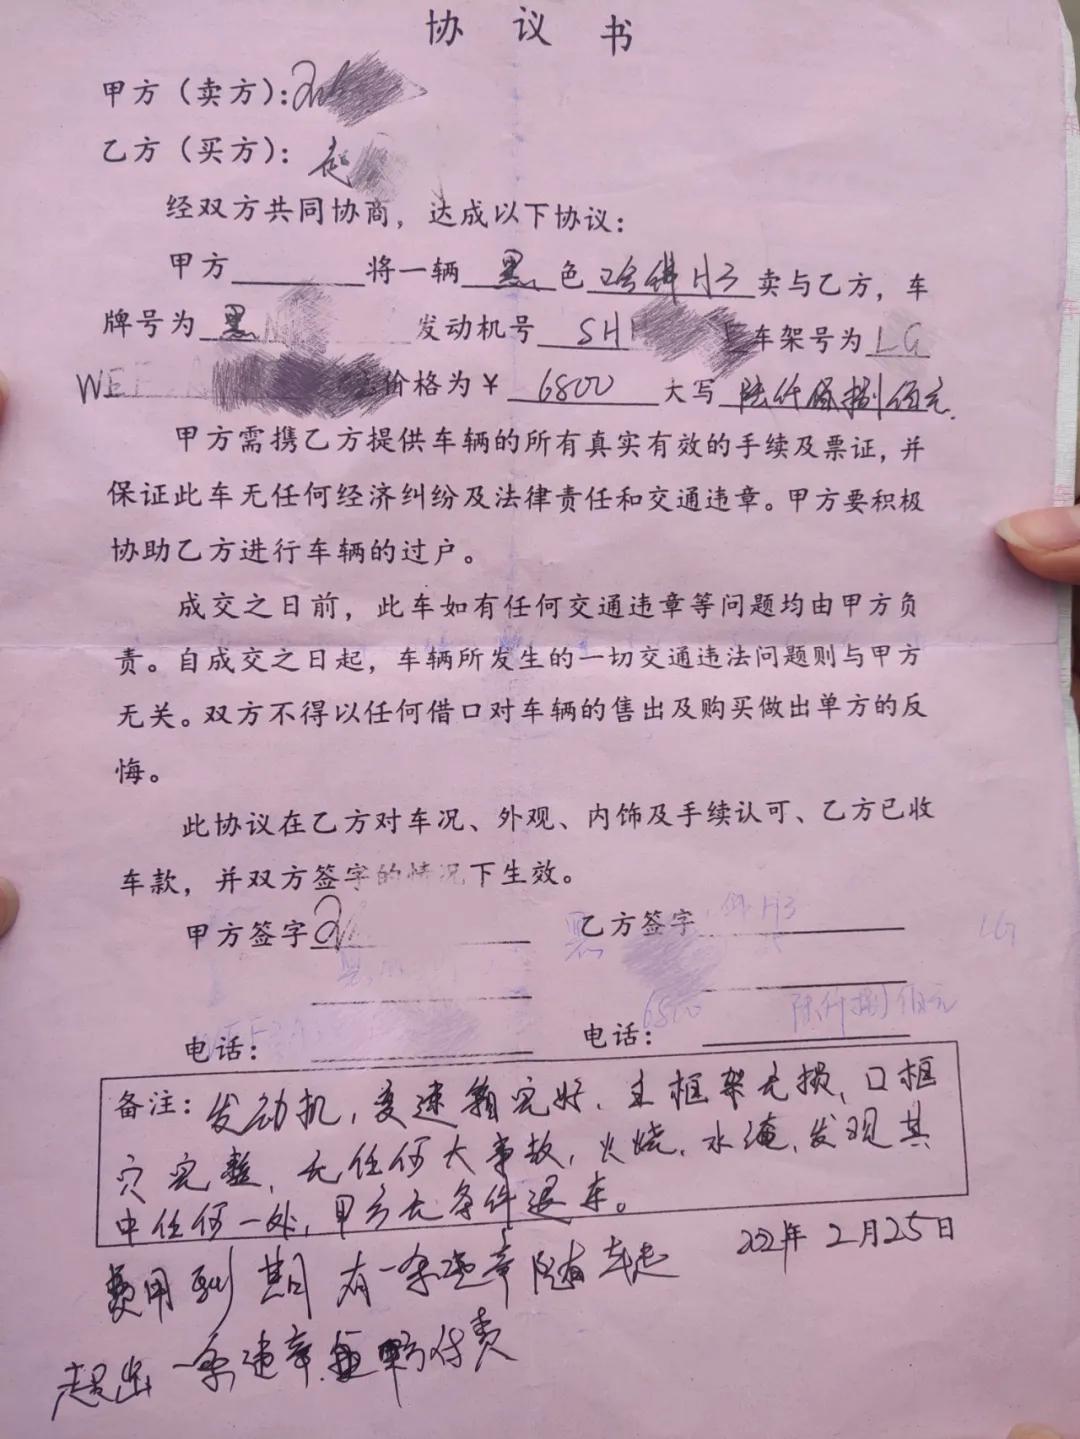 协议书
甲方（卖方）：
乙方（买方）：赵
经双方共同协商，达成以下协议：
甲方 将一辆 黑 色 哈佛H3 卖与乙方，车
牌号为 黑 发动机号 SH 车架号为 LG
WEF 价格为￥ 6800 大写 陆仟 捌佰元
甲方需携乙方提供车辆的所有真实有效的手续及票证，并
保证此车无任何经济纠纷及法律责任和交通违章。甲方要积极
协助乙方进行车辆的过户。
成交之日前，此车如有任何交通违章等问题均由甲方负
责。自成交之日起，车辆所发生的一切交通违法问题则与甲方
无关。双方不得以任何借口对车辆的售出及购买做出单方的反
悔。
此协议在乙方对车况、外观、内饰及手续认可、乙方已收
车款，并双方签字的情况下生效。
甲方签字 乙方签字
电话： 电话：
备注：发动机，变速箱完好、主框架无损、口框
穴完整、无任何大事故，火烧，水淹，发现其
中任何一处，甲方无条件退车。
2021年2月25日
费用到期日 有一条违章随车走
超出一条违章 付责